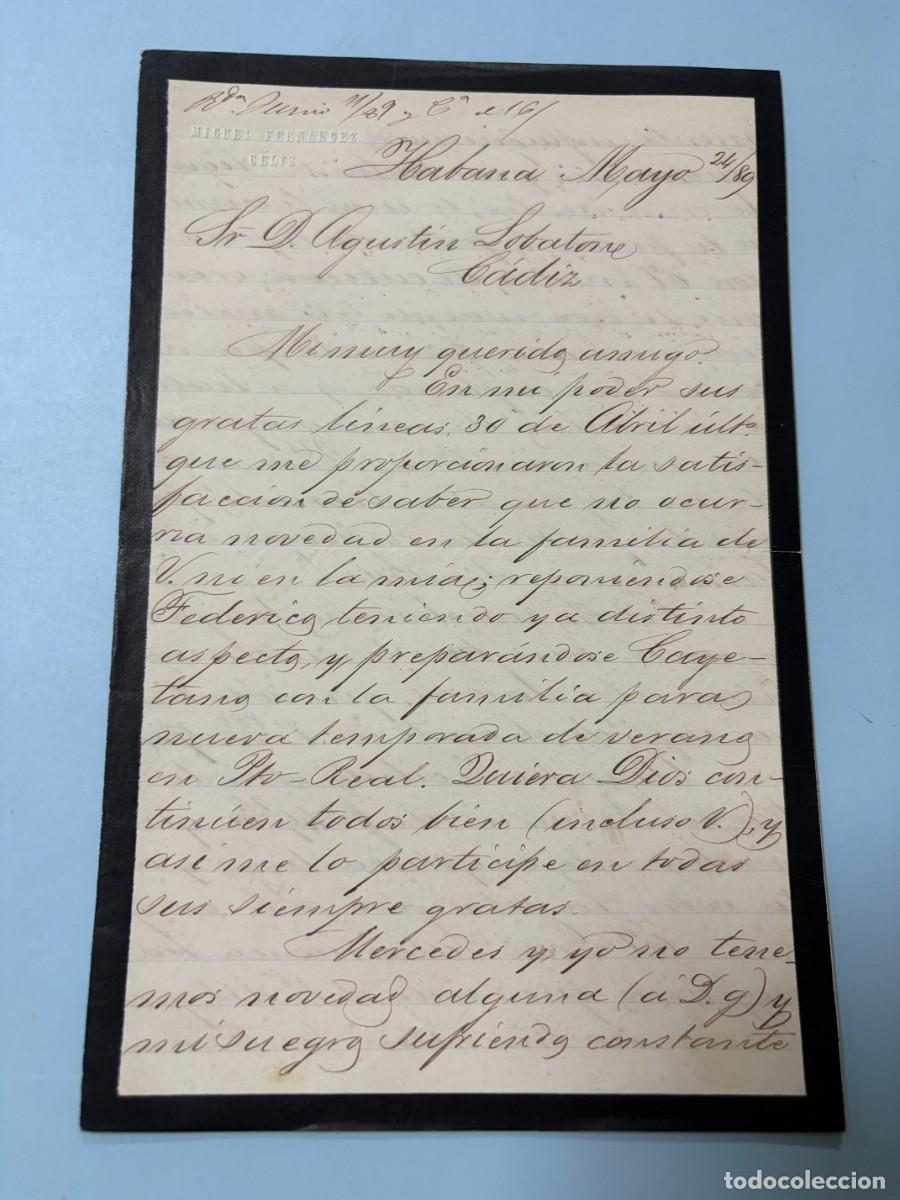 Rda Junio 11/89 y Ca el 16/
MIGUEL FERNANDEZ
CÉLIS
Habana Mayo 24/89
Sr D. Agustín Lobatone
Cádiz
Mi muy querido amigo.
En mi poder sus
gratas líneas 30 de Abril últo.
que me proporcionaron la satis-
facción de saber que no ocur-
ria novedad en la familia de
V. ni en la mía; reponiéndose
Federico, teniendo ya distinto
aspecto, y preparándose Caye-
tano con la familia para
nueva temporada de verano
en Pto-Real. Quiera Dios con-
tinúen todos bien (incluso V.), y
así me lo participe en todas
sus siempre gratas.
Mercedes y yo no tene-
mos novedad alguna (á D. g) y
mi suegro sufriendo constante
todocoleccion